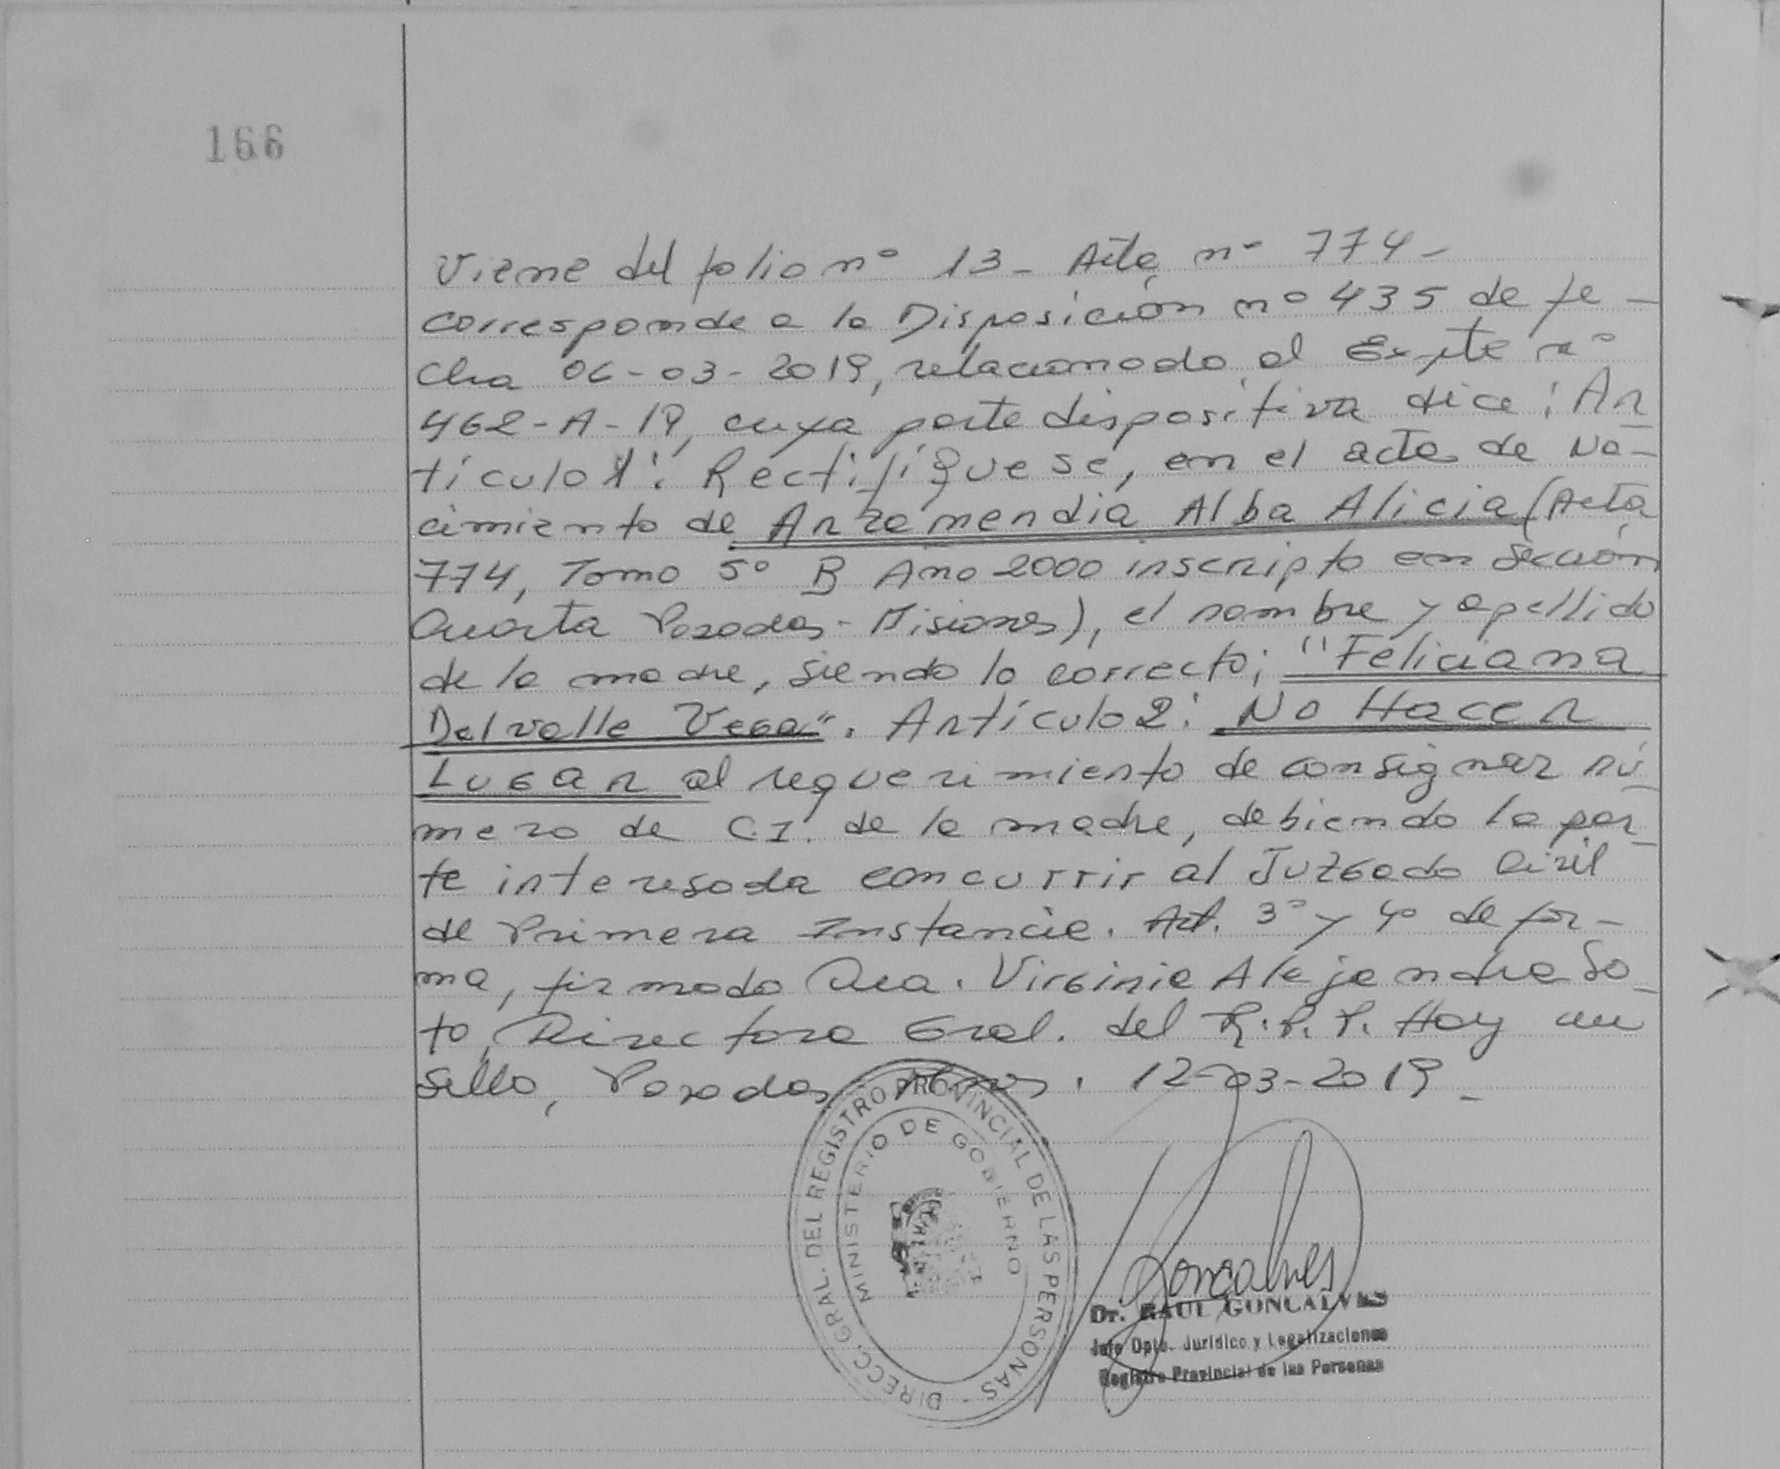 166
Viene del folio nº 13 - Acta nº 774 -
corresponde a la Disposición nº 435 de fe-
cha 06-03-2019, relacionado al Expte nº
462-A-19, cuya parte dispositiva dice: Ar-
tículo 1: Rectifíquese, en el acta de Na-
cimiento de Arzamendia Alba Alicia (Acta
774, Tomo 5º B Año 2000 inscripto en Sección
Cuarta Posadas - Misiones), el nombre y apellido
de la madre, siendo lo correcto; "Feliciana
Del valle Vega". Artículo 2: No Hacer
Lugar al requerimiento de consignar nú-
mero de C.I. de la madre, debiendo la par-
te interesada concurrir al Juzgado Civil
de Primera Instancia. Art. 3º y 4º de for-
ma, firmado Dra. Virginia Alejandra So-
to, Directora Gral. del R.P.P. Hay un
Sello, Posadas, Mnes. 12-03-2019 -
DIRECC. GRAL. DEL REGISTRO PROVINCIAL DE LAS PERSONAS -
MINISTERIO DE GOBIERNO
Goncalves
Dr. RAUL GONCALVES
Jefe Dpto. Jurídico y Legalizaciones
Registro Provincial de las Personas